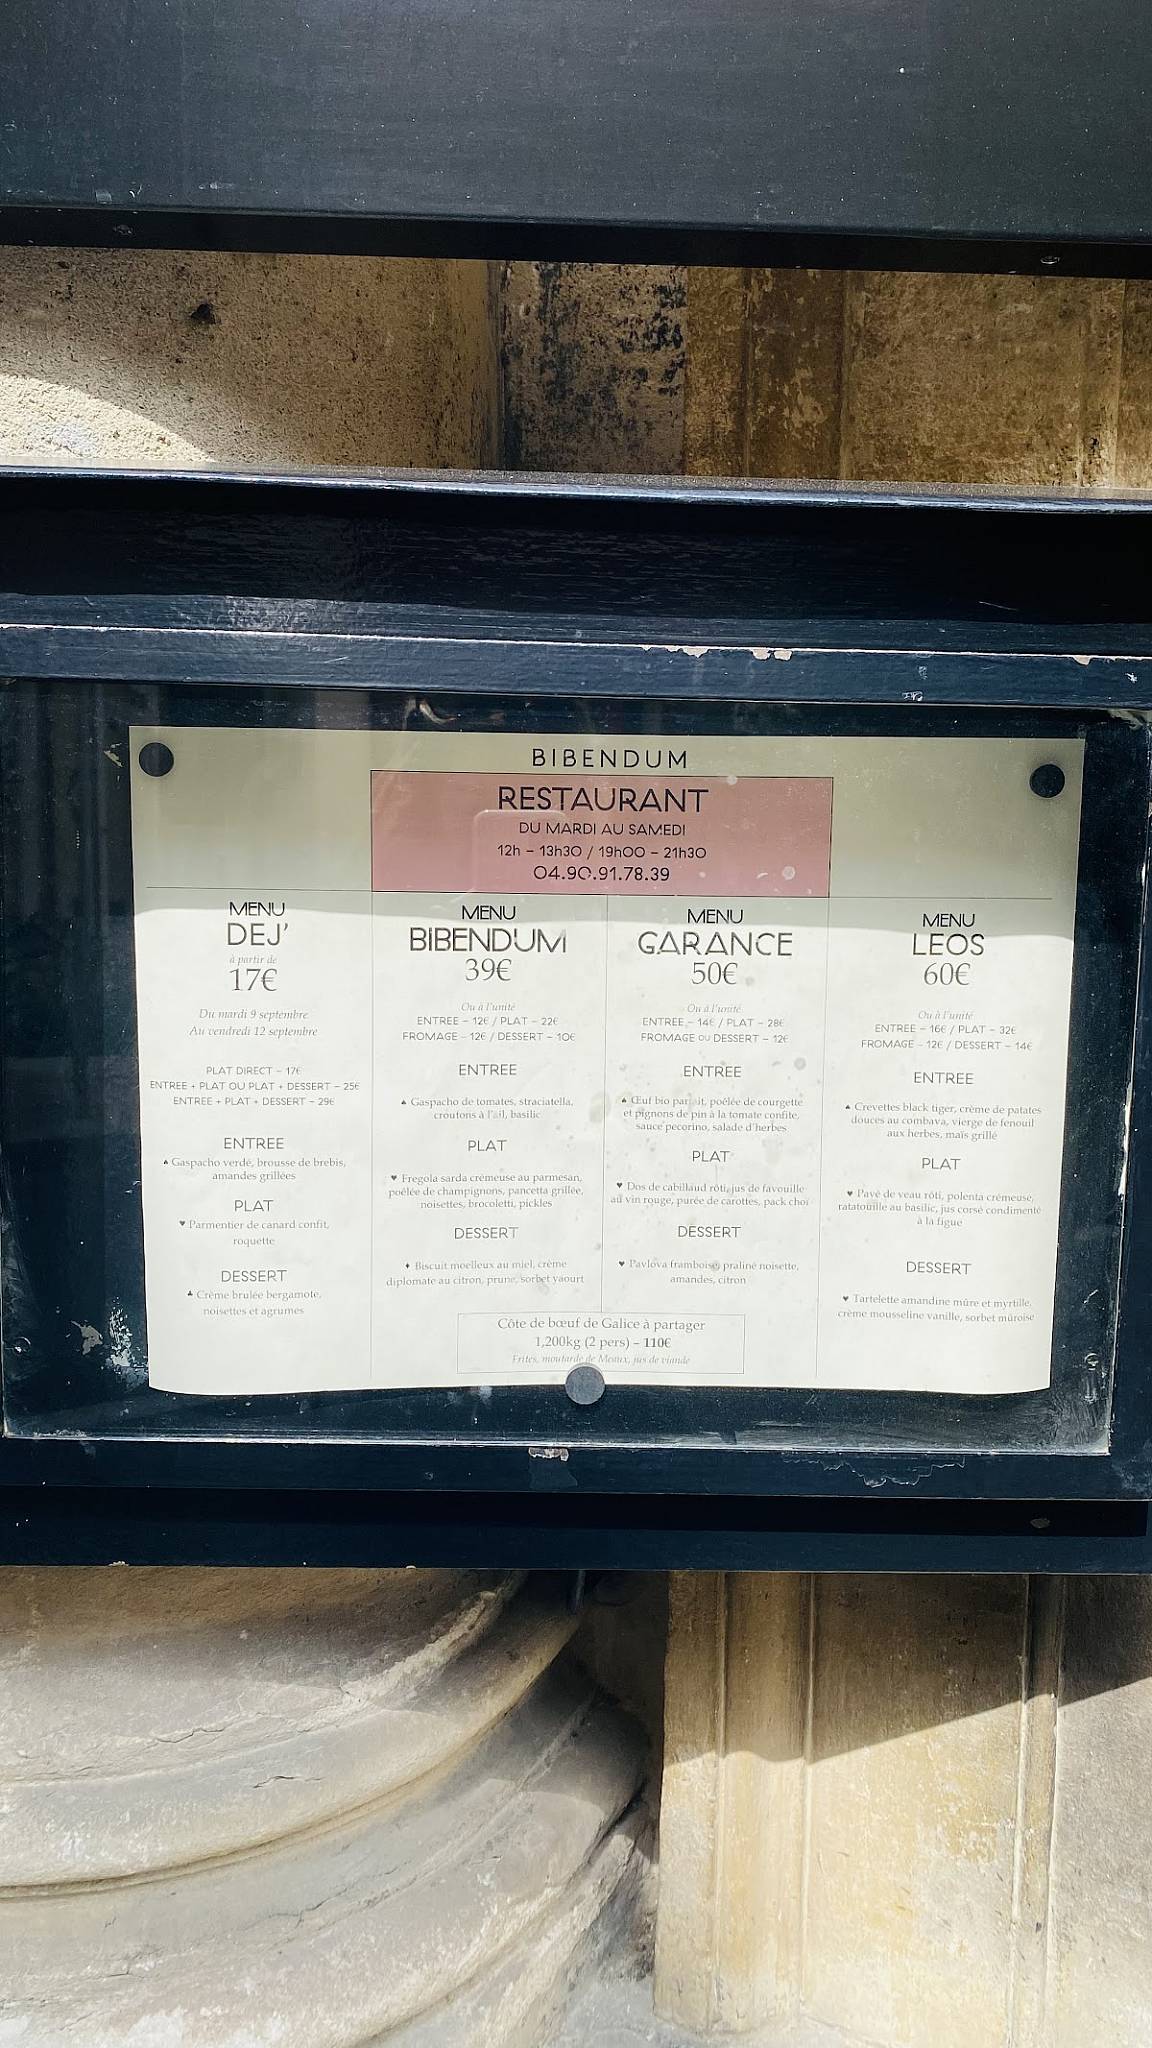 BIBENDUM
RESTAURANT
DU MARDI AU SAMEDI
12h – 13h30 / 19h00 – 21h30
04.90.91.78.39
MENU
DEJ'
à partir de
17€
Du mardi 9 septembre
Au vendredi 12 septembre
PLAT DIRECT – 17€
ENTREE + PLAT OU PLAT + DESSERT – 25€
ENTREE + PLAT + DESSERT – 29€
ENTREE
♠ Gaspacho verde, brousse de brebis,
amandes grillées
PLAT
♥ Parmentier de canard confit,
roquette
DESSERT
♣ Crème brulée bergamote,
noisettes et agrumes
MENU
BIBENDUM
39€
Ou à l'unité
ENTREE – 12€ / PLAT – 22€
FROMAGE – 12€ / DESSERT – 10€
ENTREE
♠ Gaspacho de tomates, straciatella,
croutons à l'ail, basilic
PLAT
♥ Fregola sarda crémeuse au parmesan,
poêlée de champignons, pancetta grillée,
noisettes, brocoletti, pickles
DESSERT
♦ Biscuit moelleux au miel, crème
diplomate au citron, prune, sorbet yaourt
MENU
GARANCE
50€
Ou à l'unité
ENTREE – 14€ / PLAT – 28€
FROMAGE OU DESSERT – 12€
ENTREE
♠ Œuf bio parfait, poêlée de courgette
et pignons de pin à la tomate confite,
sauce pecorino, salade d'herbes
PLAT
♥ Dos de cabillaud rôti, jus de favouille
au vin rouge, purée de carottes, pack choi
DESSERT
♥ Pavlova framboise, praliné noisette,
amandes, citron
MENU
LEOS
60€
Ou à l'unité
ENTREE – 16€ / PLAT – 32€
FROMAGE – 12€ / DESSERT – 14€
ENTREE
♠ Crevettes black tiger, crème de patates
douces au combava, vierge de fenouil
aux herbes, maïs grillé
PLAT
♥ Pavé de veau rôti, polenta crémeuse,
ratatouille au basilic, jus corsé condimenté
à la figue
DESSERT
♥ Tartelette amandine mûre et myrtille,
crème mousseline vanille, sorbet mûroise
Côte de bœuf de Galice à partager
1,200kg (2 pers) – 110€
Frites, moutarde de Meaux, jus de viande